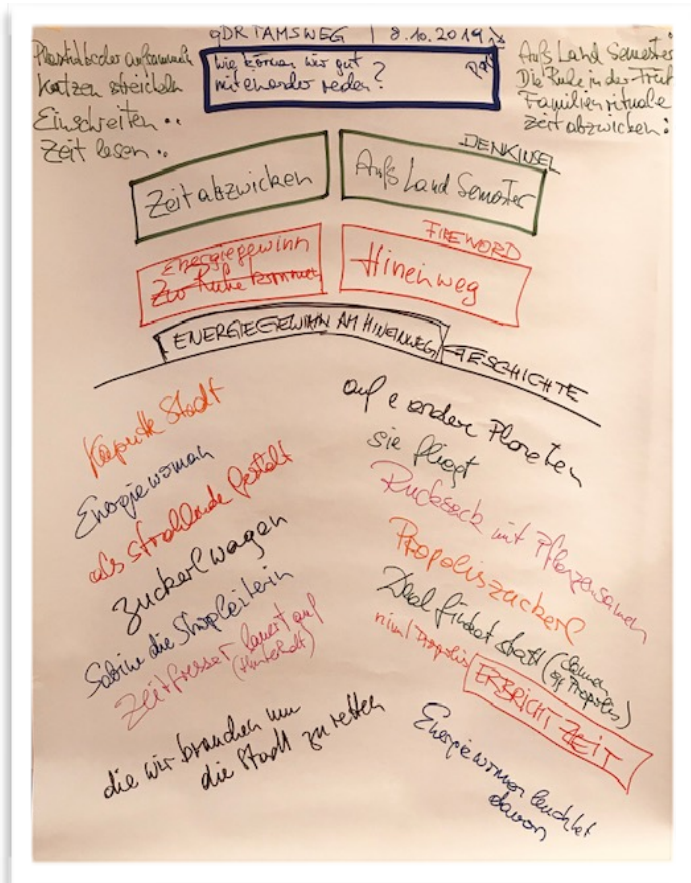 gDR TAMSWEG | 8.10.2019
Wie können wir gut
miteinander reden?
Katzen streicheln
Einschreiten..
Zeit lesen..
Aufs Land Semester
Die Ruhe in der
Familienrituale
Zeit abzwicken:
DENKINSEL
Zeit abzwicken
Aufs Land Semester
FIREWORD
Energiegewinn
Zur Ruhe kommen
Hineinweg
ENERGIEGEWINN AM HINEINWEG
GESCHICHTE
Kaputte Stadt
Energiewoman
als strahlende Gestalt
Zuckerlwagen
Sabine die Shopleiterin
Zeitfresser lauert auf
(Hinterhalt)
die wir brauchen um
die Stadt zu retten
auf e anderen Planeten
sie fliegt
Rucksack mit Pflanzensamen
Propoliszuckerl
Deal findet statt (Samen
gg Propolis)
nimmt Propolis
ERBRICHT ZEIT
Energiewoman leuchtet
davon